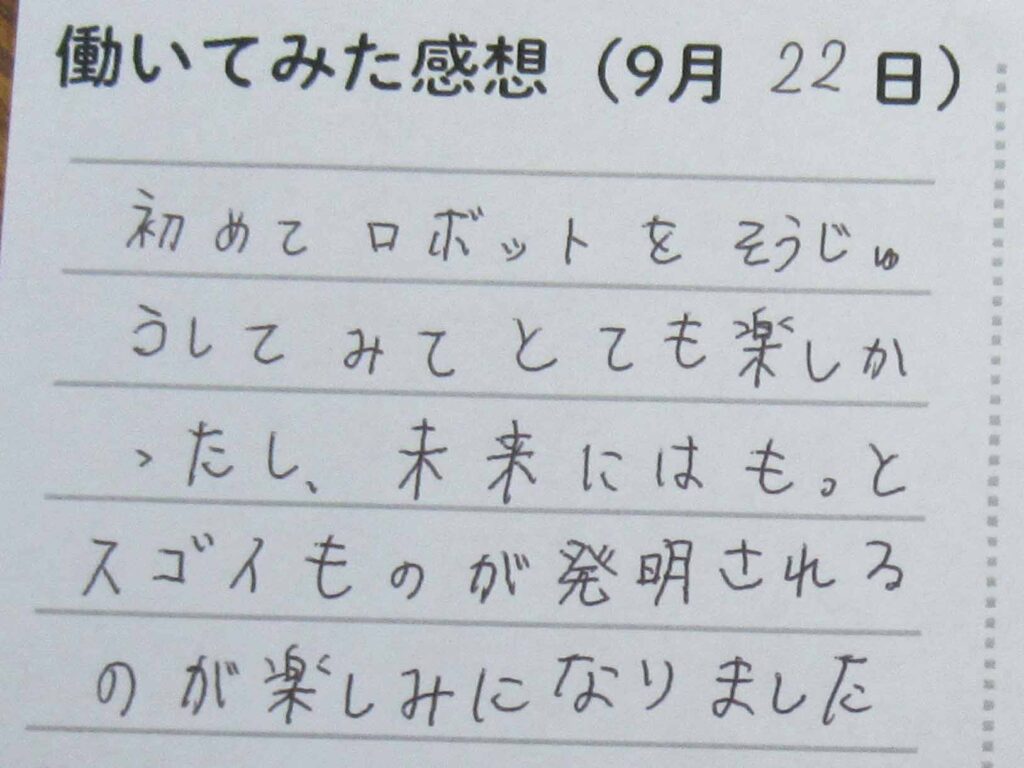 働いてみた感想(9月 22 日)
初めてロボットをそうじゅ
うしてみてとても楽しか
ったし、未来にはもっと
スゴイものが発明される
のが楽しみになりました